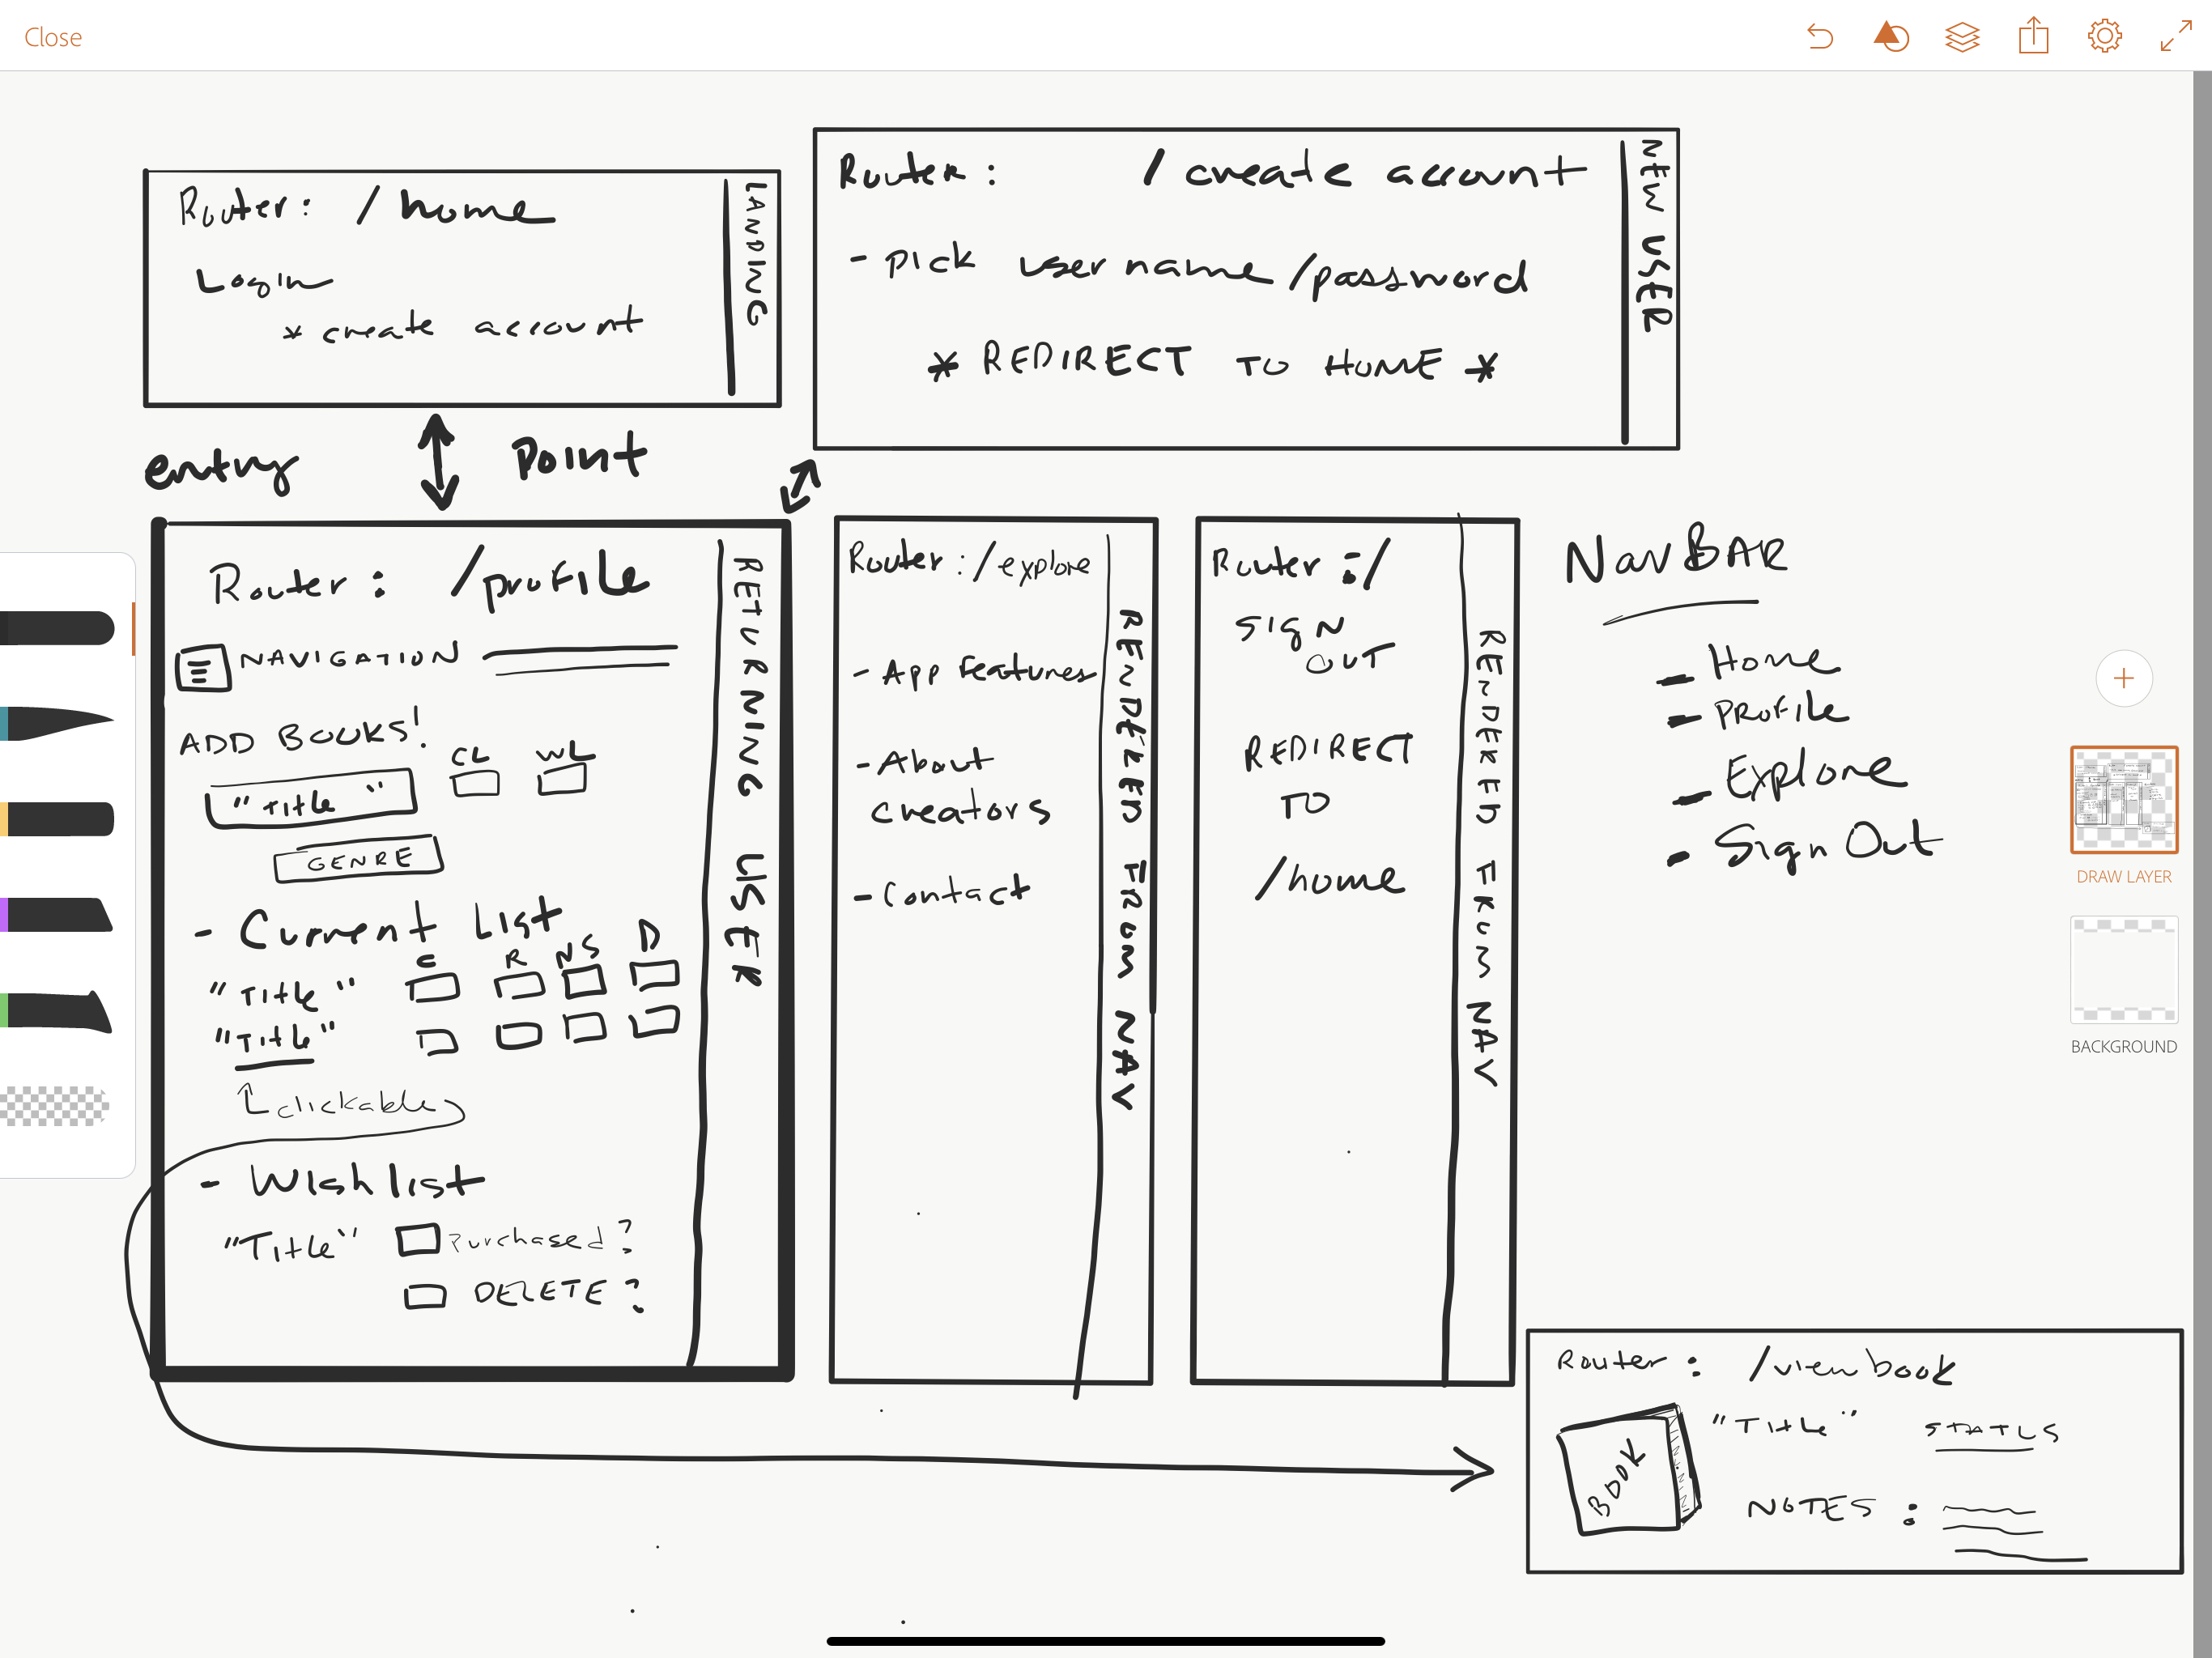 Close
Router: /home
Login
* create account
LANDING
Router: /create account
- Pick username/password
* REDIRECT TO HOME *
NEW USER
entry Point
Router: /profile
NAVIGATION
ADD BOOKS!
CL WL
"Title"
GENRE
- Current List
C R NS D
"Title"
"Title"
clickable
- Wishlist
"Title" Purchased?
DELETE?
RETURNING USER
Router: /explore
- App features
- About
creators
- Contact
RENDERED FROM NAV
Router: /
Sign
OUT
REDIRECT
TO
/home
RENDERED FROM NAV
NavBAR
- Home
- Profile
- Explore
- Sign Out
DRAW LAYER
BACKGROUND
Router: /viewbook
BOOK
"Title"
NOTES :